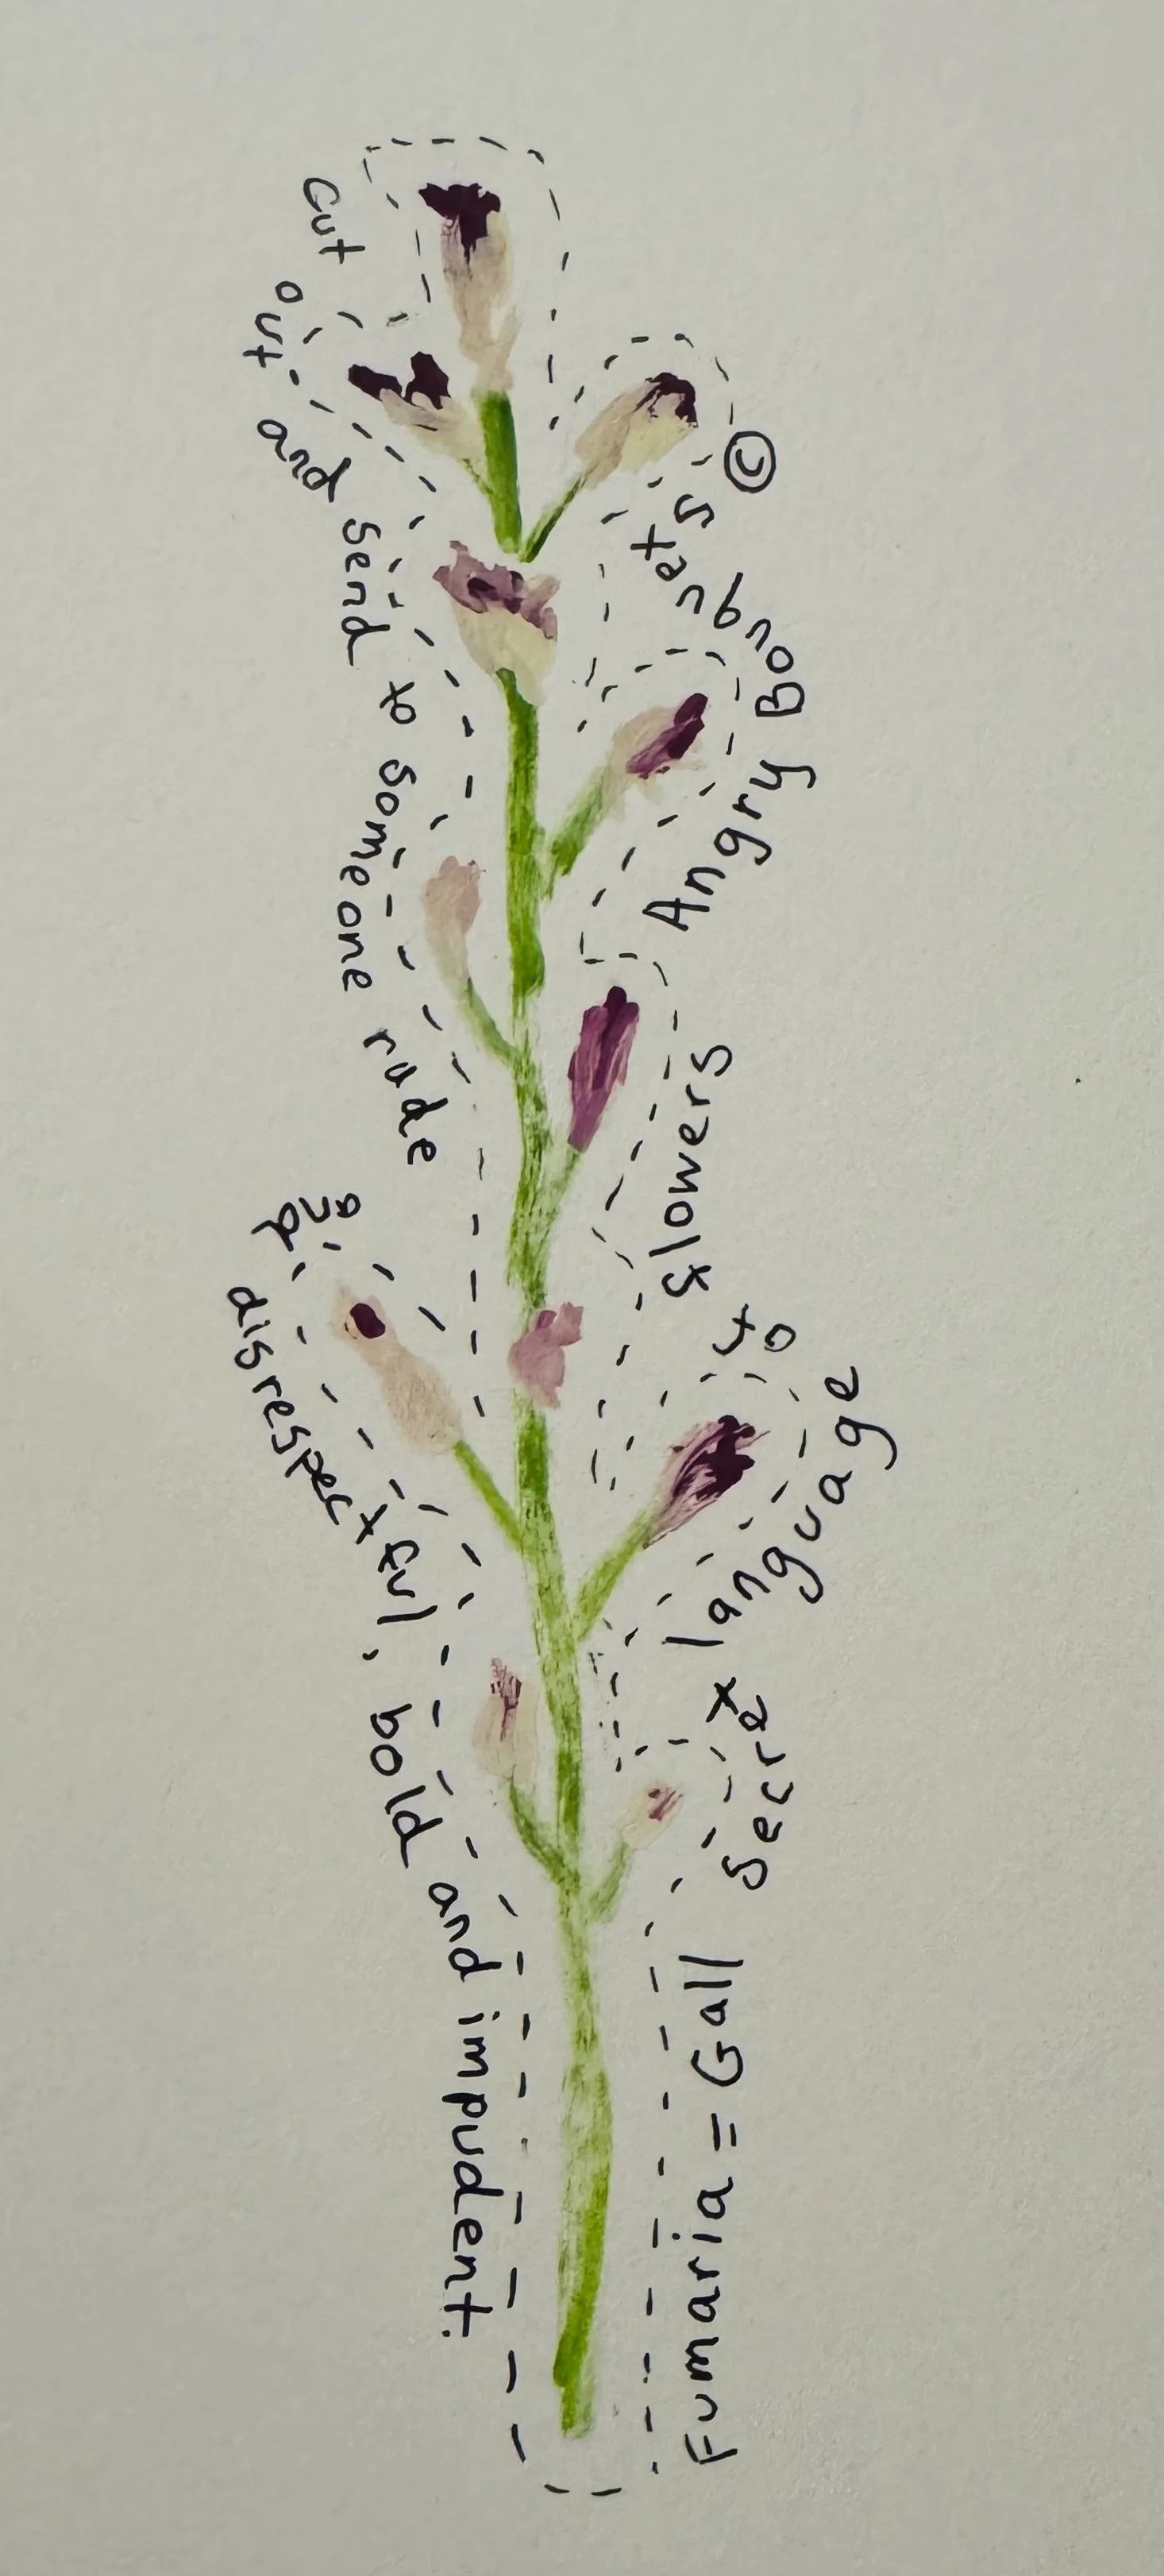 cut out and send to someone rude
and disrespectful, bold and impudent.
Fumaria = Gall secret language of flowers Angry Bouquets ©